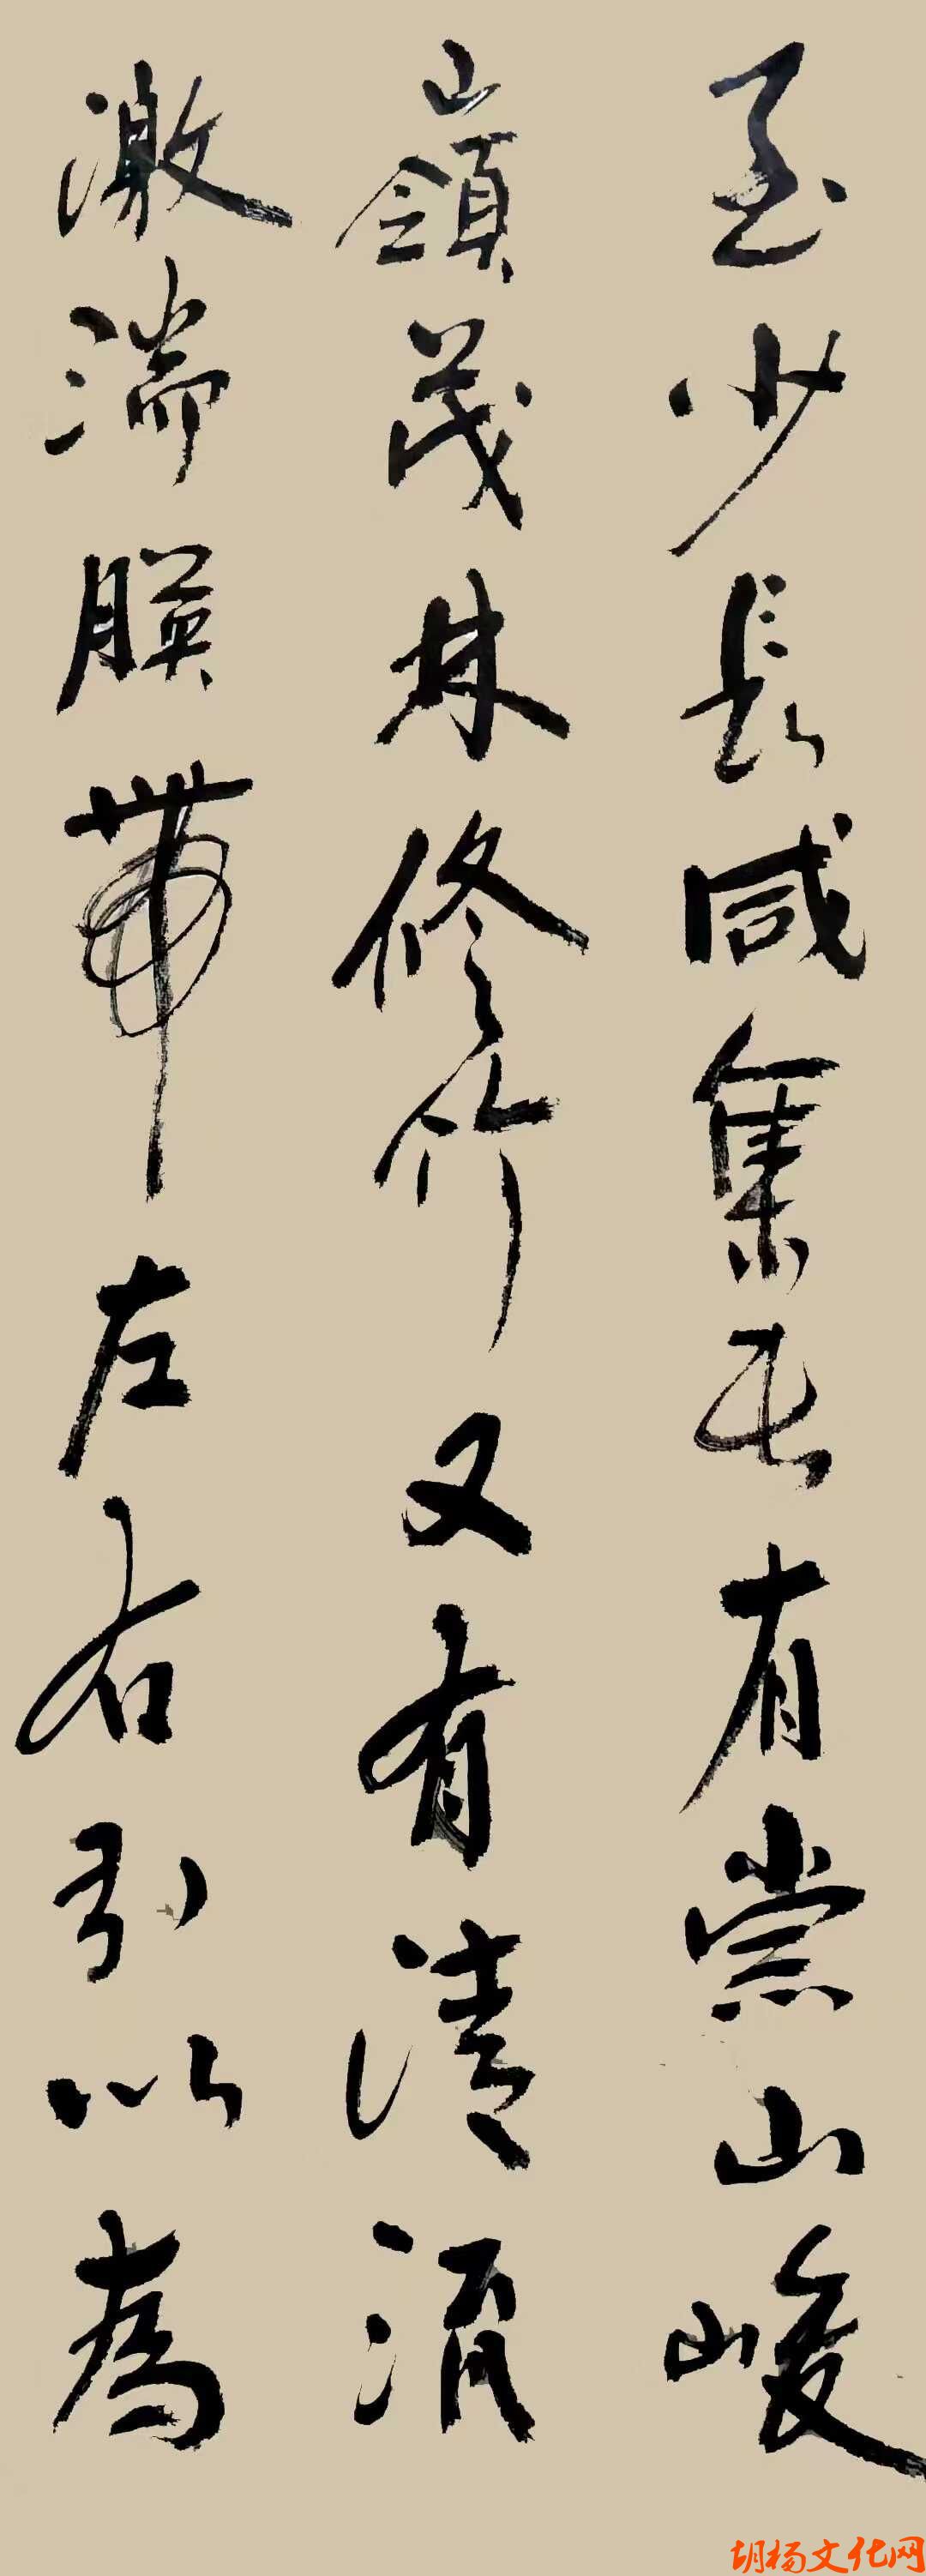 至少長咸集此有崇山峻
嶺茂林修竹又有清流
激湍暎帶左右引以為
胡杨文化网